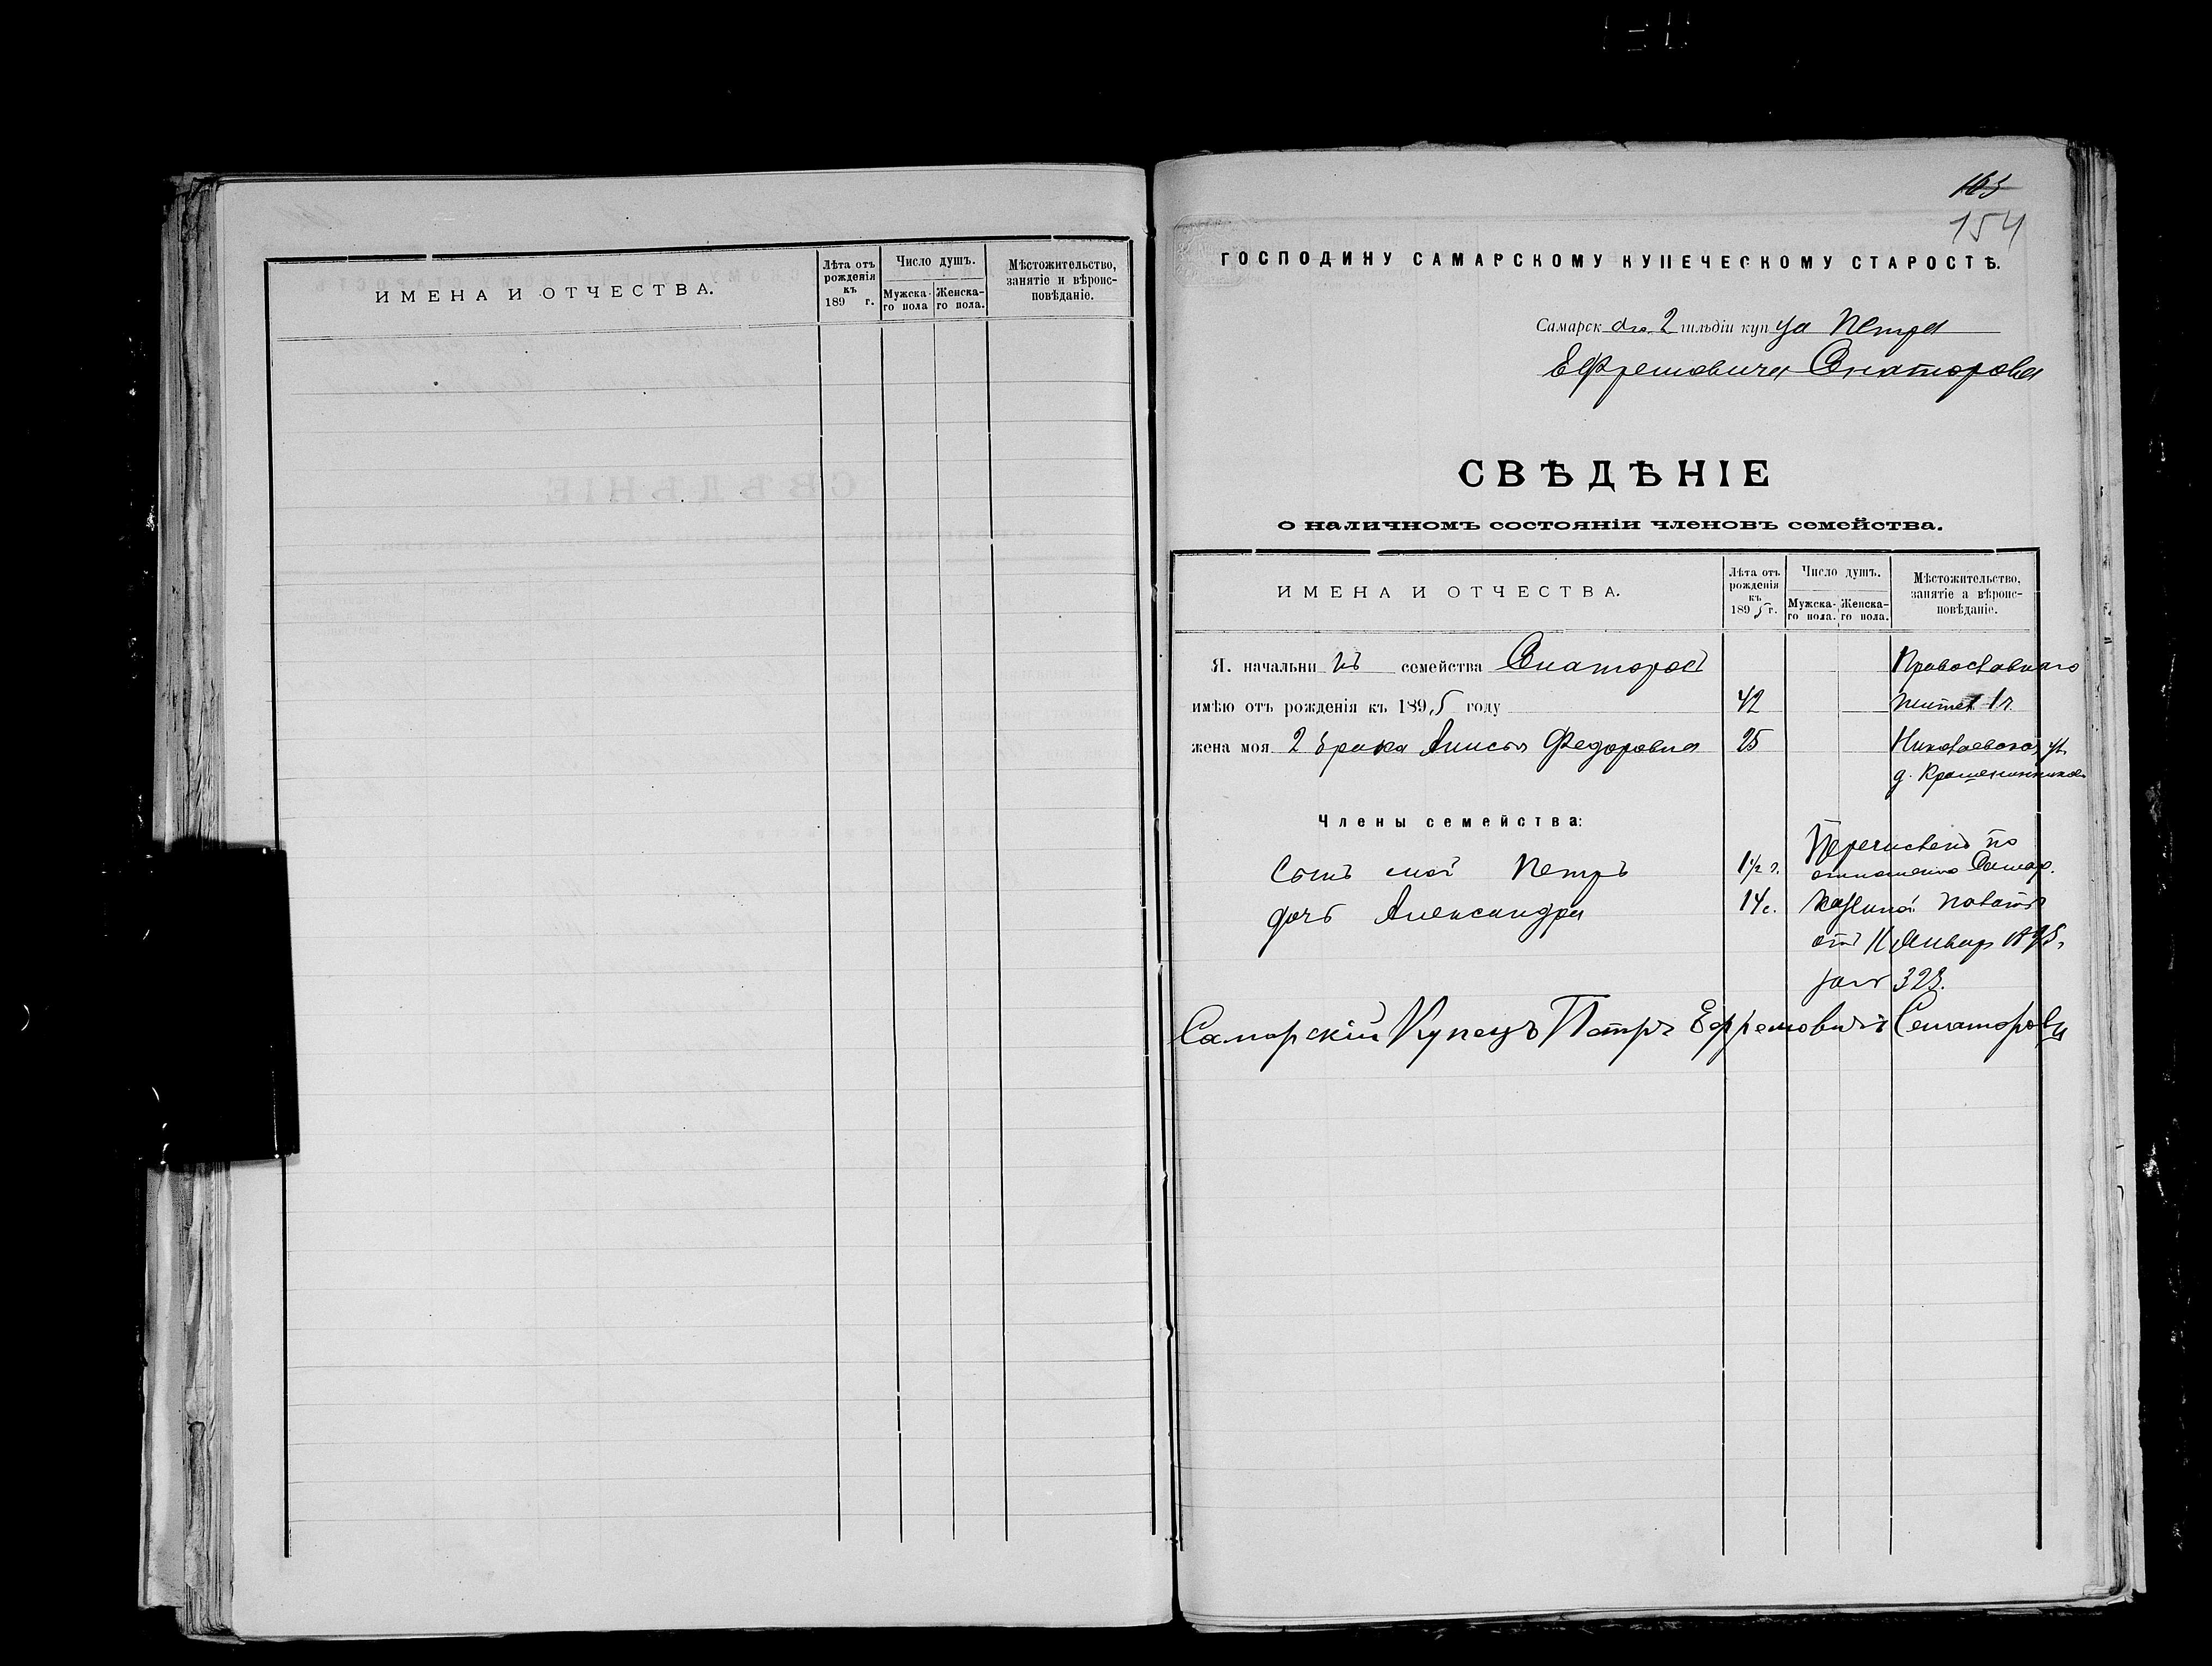 ИМЕНА И ОТЧЕСТВА.
Лѣта отъ рожденія къ 189 г.
Число душъ.
Мужска-го пола
Женска-го пола.
Мѣстожительство, занятіе и вѣроис-повѣданіе.
165
154
ГОСПОДИНУ САМАРСКОМУ КУПЕЧЕСКОМУ СТАРОСТѢ.
Самарск аго 2 гильдіи куп ца Петра
Ефремовича Сенаторова
СВѢДѢНІЕ
о наличномъ состояніи членовъ семейства.
ИМЕНА И ОТЧЕСТВА.
Лѣта отъ рожденія къ 1895 г.
Число душъ.
Мужска-го пола.
Женска-го пола.
Мѣстожительство, занятіе а вѣроис-повѣданіе.
Я. начальни къ семейства Сенаторов Православнаго
имѣю отъ рожденія къ 1895 году 42
жена моя 2 брака Анисья Федоровна 25 Николаевской ул.
д. Крашенинникова
Члены семейства:
Сынъ мой Петръ 1 1/2 г. Перечислены по
отношенію Самар.
дочь Александра 14 Казенной Палаты
от 11 Январ 1895
за № 323.
Самарскій Купецъ Петръ Ефремовичъ Сенаторовъ